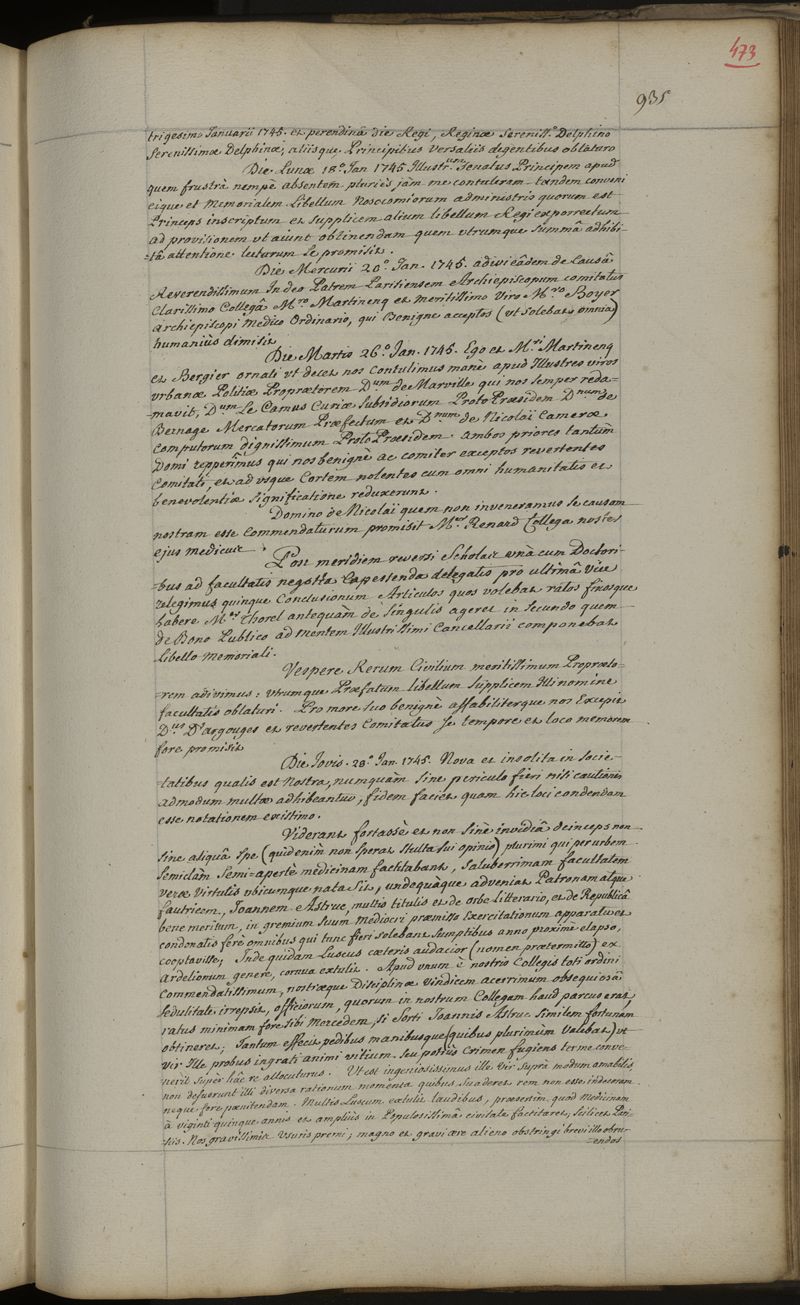 473
935
trigesimo Januarii 1745. et perendinâ die Regi, Reginæ Sereniss.º Delphino
Serenissimæ Delphinæ, aliisque Principibus Versaliis degentibus oblaturo
Die Lunæ 18.º Jan 1745 Illustr.um Senatus Principem apud
quem frustrà nempè absentem pluriès jàm me contuleram tandem conveni
eique et Memorialem Libellum Nosocomiorum administrio quorum est
Princeps inscriptum et supplicem alium libellum Regi exporrectum
ad provisionem vt aiunt obtinendam quem vtrumque summâ adhibi-
=tâ attentione lecturum se promisit.
Die Mercurii 20.º Jan. 1745. adivi eâdem de Causâ
Reverendissimum In deo Patrem Parisiensem Archiepiscopum comitatus
Clarissimo Collegâ M.ro Martinenq et meritissimo Viro M.ro Boyer
Archiepiscopi Medico Ordinario, qui Benigne acceptos (vt solebat omnia)
humaniùs dimisit
Die Martis 26.º Jan. 1745. Ego et M.ri Martinenq
et Bergier ornati vt decet nos Contulimus manè apud Illustres viros
vrbanæ Politiæ Proprætorem D.um de Marville qui nos semper reda=
=mavit, D.um Le Camus Curiæ Subsidiorum Proto Præsidem D.num de
Bernage Mercatorum Præfectum et D.num de Nicolaï Cameræ
Computorum dignissimum ProtoPræsidem. ambos priores tantùm
Domi repperimus qui nos benignè ac comiter exceptos revertentes
Comitati, et ad vsque Cortem nolentes cum omni humanitatis et
benevolentiæ significatione reduxerunt.
Domino de Nicolaï quem non inveneramus se causam
nostram esse Commendaturum promisit M.er Renard Collega noster
ejus medicus.
Post meridiem reversi Scholas vnà cum Doctori-
=bus ad facultatis negotia Capessenda delegatis pro ultimâ Vice
relegimus quinque Conclusionum Articulos quos volebat ratos fixosque
habere M.er Thorel antequàm de singulis ageret in secundo quem
de Bono Publico ad mentem Illustrissimi Cancellarii componebat
Libello Memoriali.
Vespere Rerum Civilium meritissimum Proprœto-
=rem adivimus; vtrumque Præfatum libellum supplicem Illi nomine
facultatis oblaturi. Pro more suo benignè affabiliterque nos Excepit
D.us D'argouges et revertentes Comitatus se tempore et loco memorem
fore promisit
Die Jovis. 28.º Jan. 1745. Nova et insolita in Socie-
=tatibus qualis est Nostra, numquàm sine periculo fieri nisi cautiones
admodum multæ adhibeantur, fidem faciet quam hic loci condendam
esse notationem existimo.
Viderant fortassè et non sinè invidiâ deinceps non
sine aliquâ spe (quid enim non sperat stulta sui opinio) plurimi qui per urbem
semiclàm semi=apertè medicinam factitabant, Saluberrimam facultatem
veræ Virtutis vbicumque nata sit, undequàque adveniat Patronam atque
fautricem, Joannem Astruc, multis titulis et de Orbe Litterario, et de Republicâ
bene meritum, in gremium suum Mediocri præmisso Exercitationum apparatu et
condonatis ferè omnibus qui tunc fieri solebant sumptibus anno proximè elapso,
cooptavisse; Inde quidam Luscus cæteris audacior (nomen prætermitto) ex
Ardelionum genere, cornua extulit. Apud vnum è nostris Collegis toti ordini
Commendatissimum, nostræque Disciplinæ Vindicem acerrimum obsequiosâ
sedulitate irrepsit, officiorum, quorum in nostrum Collegam haud parcus erat
ratus minimam fore sibi Mercedem, si sorti Joannis Astruc similem fortunam
obtineret; Tantum effecit pedibus manibusque (quibus plurimùm Valebat) vt
vir Ille probus ingrati animi vitium seu potiùs Crimen fugiens ter me conve-
nerit super hâc re allocuturus. Ut est ingeniosissimus ille Vir suprà modum amabilis
non defuerunt illi diversa rationum momenta quibus suaderet rem non esse indecoram
neque fore pœnitendam. Multis Luscum extulit laudibus, præsertim quod Medicinam
à viginti quinque annis et ampliùs in Populosissimâ civitate factitaret, scilicet Pari-
siis. Nos gravissimis Vsuris premi; magno et gravi ære alieno obstringi brevi illo obru-
=endos